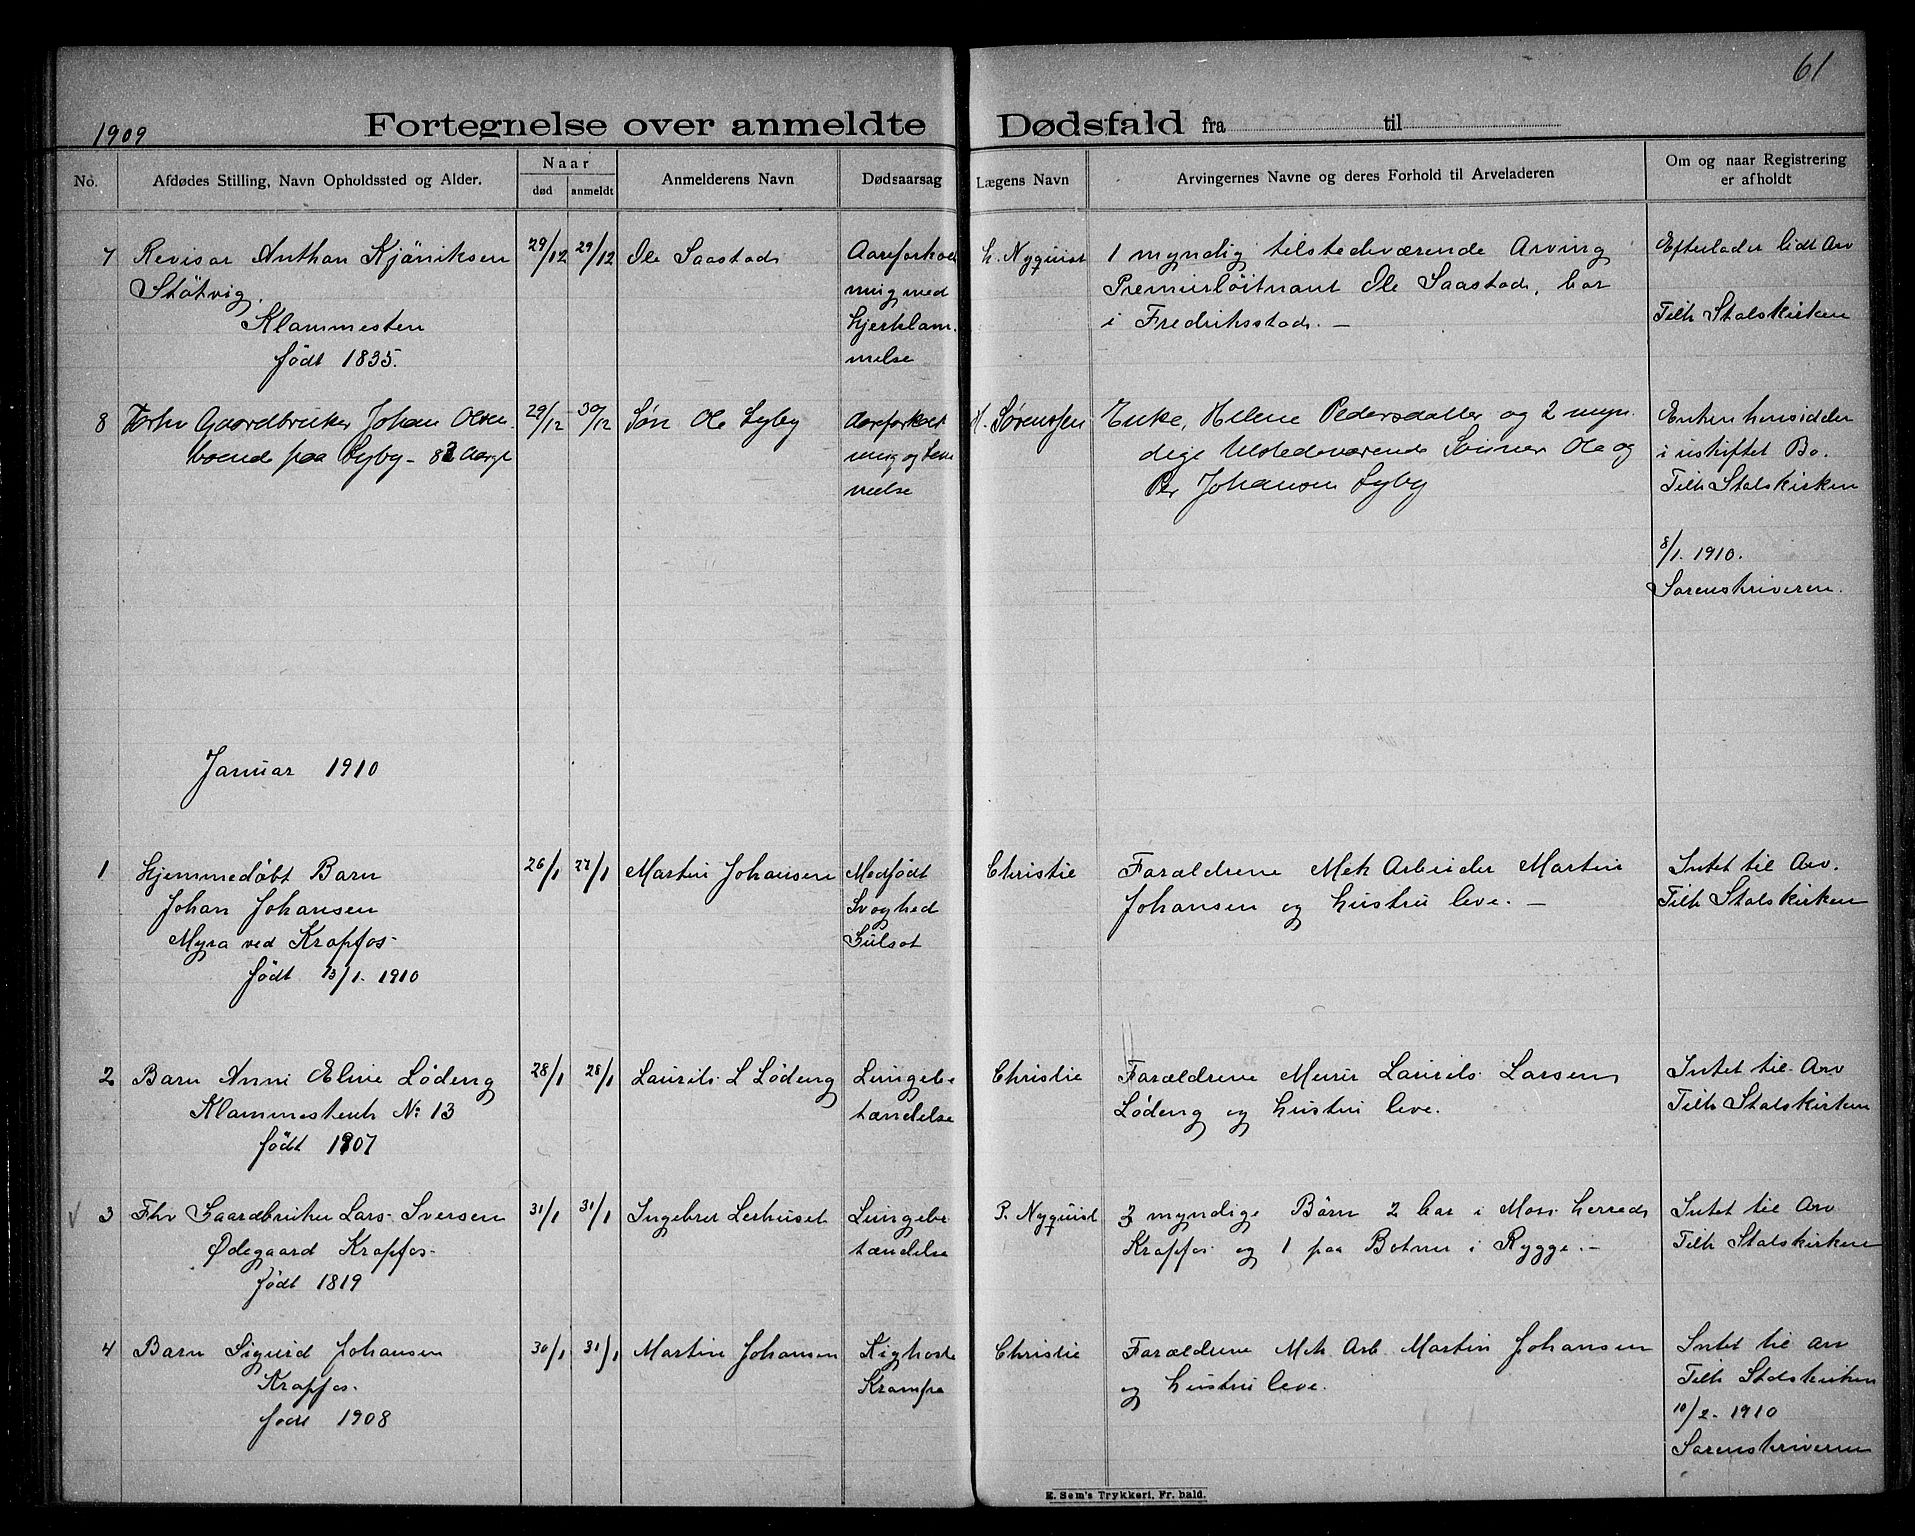 61
1909
Fortegnelse over anmeldte Dødsfald fra til
No.
Afdødes Stilling, Navn Opholdssted og Alder.
Naar
død
anmeldt
Anmelderens Navn
Dødsaarsag
Lægens Navn
Arvingernes Navne og deres Forhold til Arveladeren
Om og naar Registrering
er afholdt
7
Revisor Anthon Kjöniksen
Støtvig
Klommesten
født 1835.
29/12
29/12
Ole Saastad
Aareforkal
ning med
hjertelam
melse
P. Nyquist
1 myndig tilstedeværende Arving
Premierløitnant Ole Saastad, bor
i Fredriksstad. —
Efterlader lidt Arv
Tilh Statskirken
8
Forhv Gaardbruker Johan Olsen
boende paa Lyby - 82 Aar gl
29/12
30/12
Søn Ole Lyby
Aareforkalk
ning og Lam
melse
H. Sørenssen
Enke, Helene Pedersdatter og 2 myn
dige tilstedeværende Sønner Ole og
Per Johansen Lyby
Enken hensidder
i uskiftet Bo.
Tilh Statskirken
8/1. 1910.
Sorenskriveren.
Januar 1910
1
Hjemmedøbt Barn
Johan Johansen
Myra ved Krapfos-
født 13/1. 1910
26/1
27/1
Martin Johansen
Medfødt
Svaghed
Gulsot
Christie
Forældrene Mek Arbeider Martin
Johansen og hustru leve. —
Intet til Arv.
Tilh Statskirken
2
Barn Anni Eline Lødeng
Klommestenh No 13
født 1907
28/1
28/1
Laurits L Lødeng
Lungebe
tændelse
Christie
Forældrene Murer Laurits Larsen
Lødeng og hustru leve.
Intet til Arv
Tilh Statskirken
3
Fhv Gaardbruker Lars Iversen
Ødegaard Krapfos-
født 1819
31/1
31/1
Ingebret Lerhuset
Lungebe
tændelse
P. Nyquist
3 myndige Børn 2 bor i Moss herred
Krapfos og 1 paa Botner i Rygge. —
Intet til Arv
Tilh Statskirken
4
Barn Sigurd Johansen
Krapfos-
født 1908
30/1
31/1
Martin Johansen
Kighoste
Krampe
Christie
Forældrene Mek Arb Martin Johansen
og hustru leve.
Intet til Arv
Tilh Statskirken
10/2. 1910
Sorenskriveren
E. Sem's Trykkeri, Fr. hald.